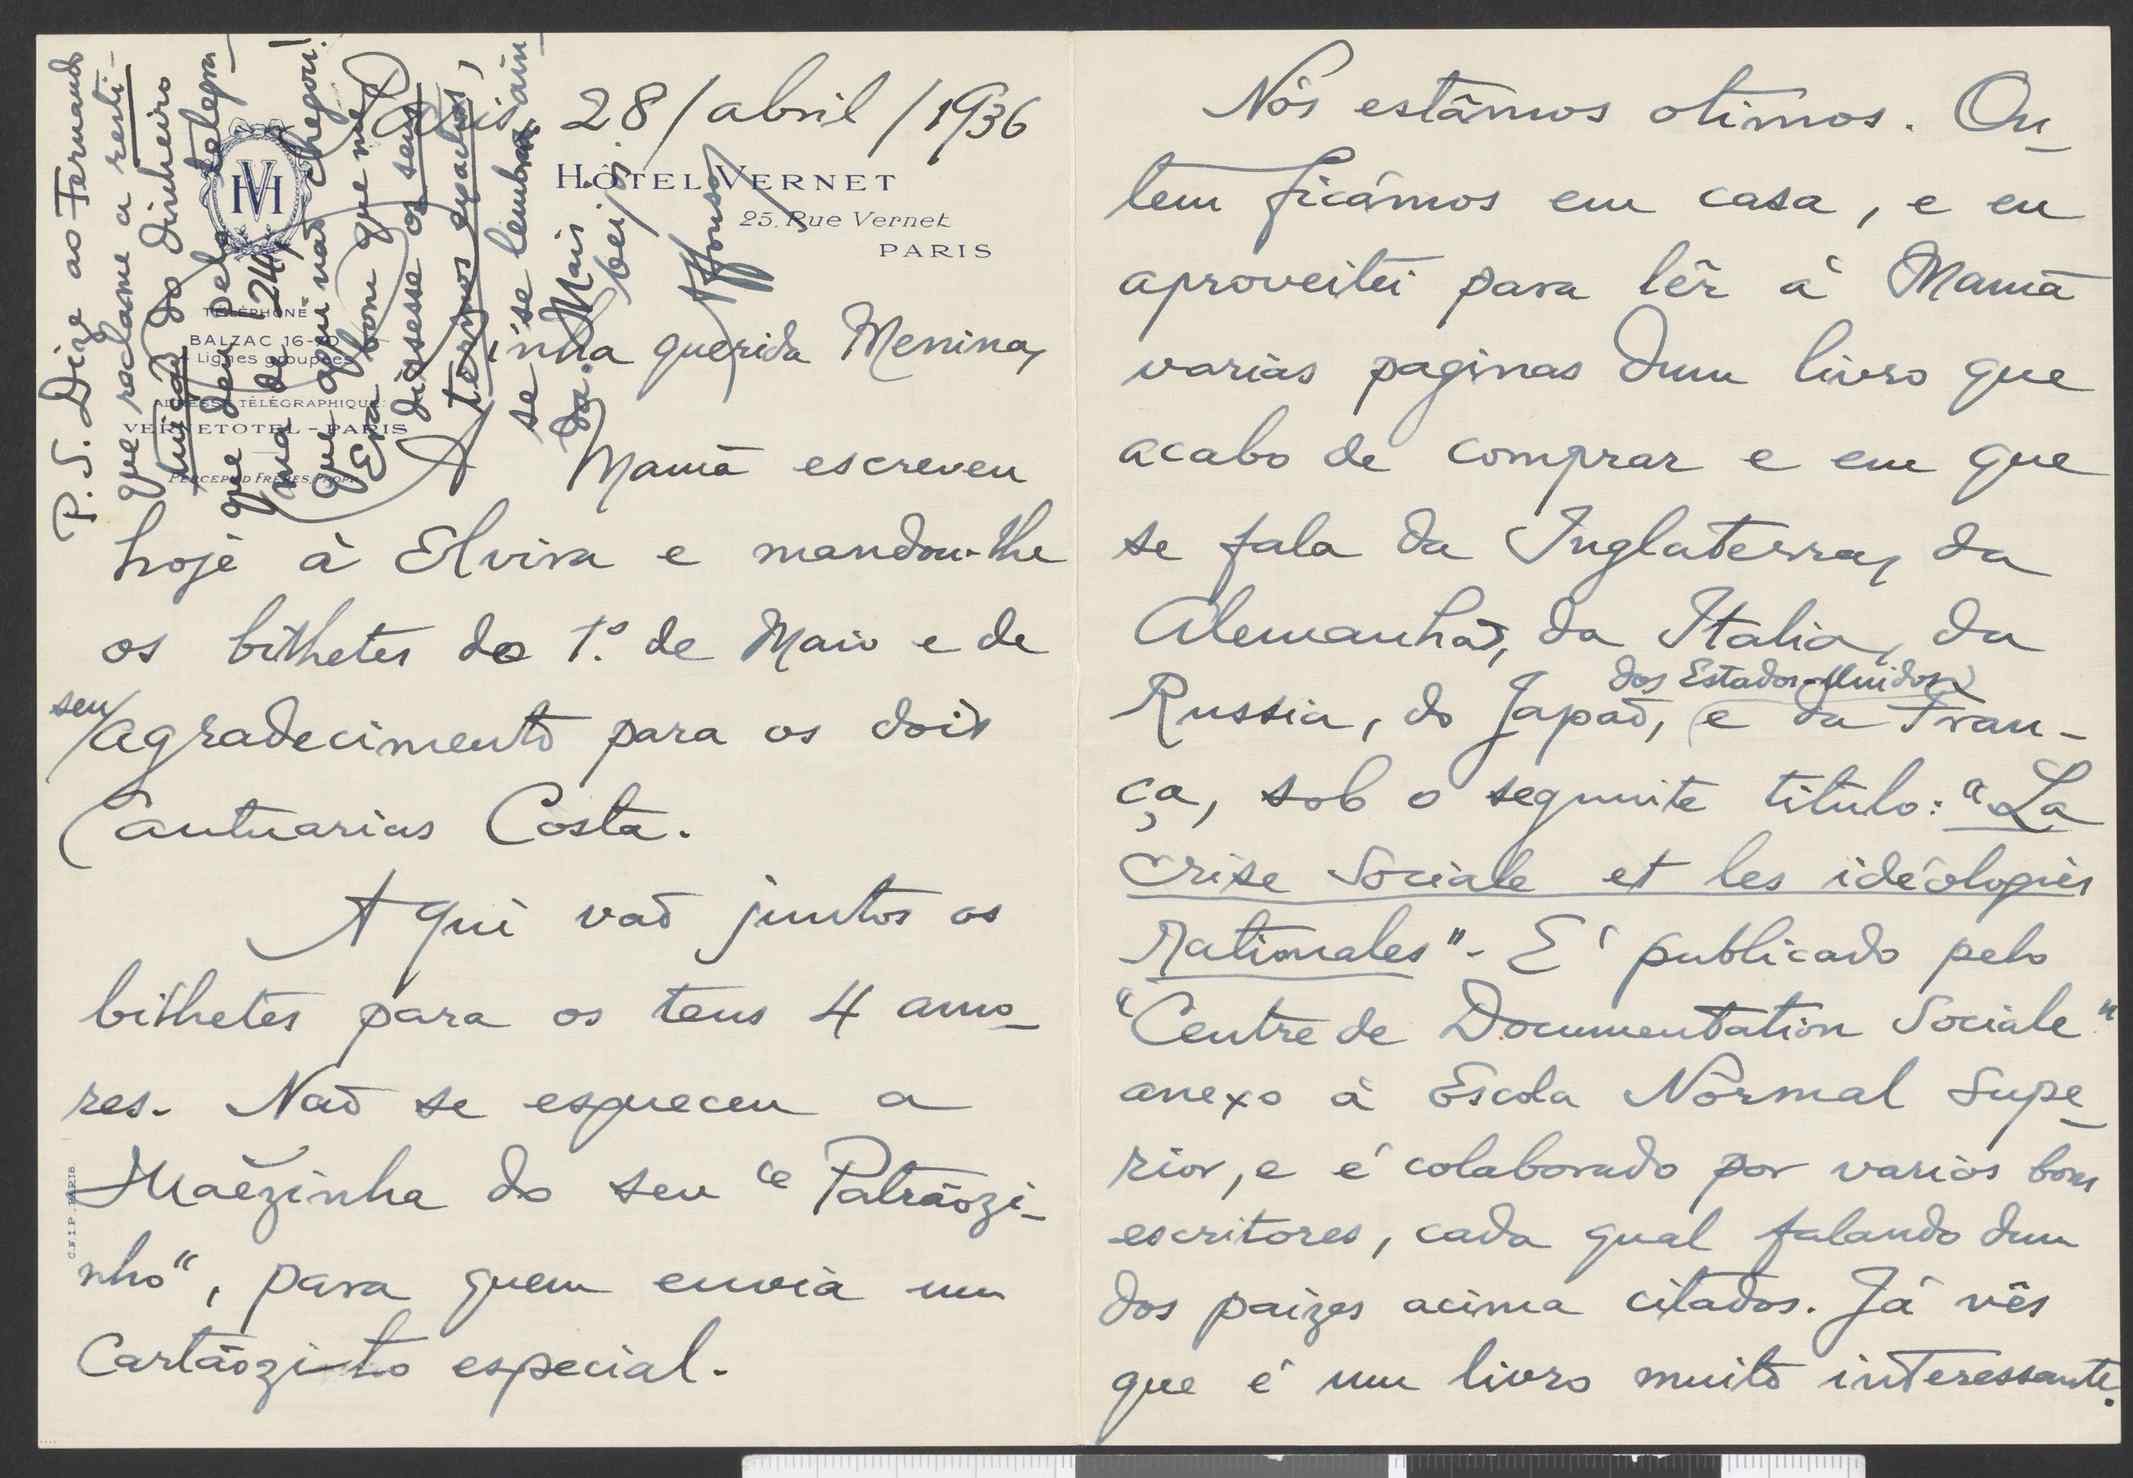 Paris, 28/abril/1936
HÔTEL VERNET
25, Rue Vernet
PARIS
HV
TÉLÉPHONE
BALZAC 16-70
Lignes groupées
ADRESSE TÉLÉGRAPHIQUE
VERNETOTEL - PARIS
PERCEPIED FRÈRES, PROPR.
Minha querida Menina,
A Mamã escreveu
hoje à Elvira e mandou-lhe
os bilhetes do 1.º de Maio e de
seu/agradecimento para os dois
Cantuarias Costa.
Aqui vaõ juntos os
bilhetes para os teus 4 amo-
res. Naõ se esqueceu a
Maẽzinha do seu "Patrãozi-
nho", para quem envia um
Cartãozito especial.
C.N.I.P. PARIS
P. S. Dize ao Fernando
que reclame a resti-
tuição do dinheiro
que deu pelo telegra-
ma de 1 24/
que aqui naõ chegou!
Era bom que me
dissesse os seus
termos exactos,
se se lembrar ain-
da. Mais
beijos
Affonso
Nós estâmos otimos. On-
tem ficámos em casa, e eu
aproveitei para lêr á Mamã
varias paginas dum livro que
acabo de comprar e em que
se fala da Inglaterra, da
Alemanha, da Italia, da
Russia, do Japaõ, (dos Estados-Unidos)
e da Fran-
ça, sob o seguinte titulo: "La
crise Sociale et les idéologies
Nationales". E' publicado pelo
"Centre de Documentation Sociale"
anexo á Escola Normal Supe-
rior, e é colaborado por varios bons
escritores, cada qual falando dum
dos paizes acima citados. Já vês
que é um livro muito interessante.